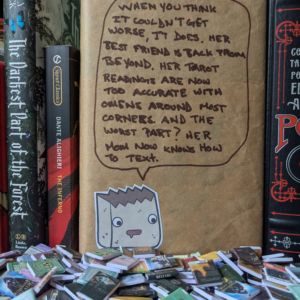 WHEN YOU THINK
IT COULDN'T GET
WORSE, IT DOES. HER
BEST FRIEND IS BACK FROM
BEYOND. HER TAROT
READINGS ARE NOW
TOO ACCURATE WITH
OMENS AROUND MOST
CORNERS AND THE
WORST PART? HER
MOM NOW KNOWS HOW
TO TEXT.
The Darkest Part of the Forest
DANTE ALIGHIERI
THE INFERNO